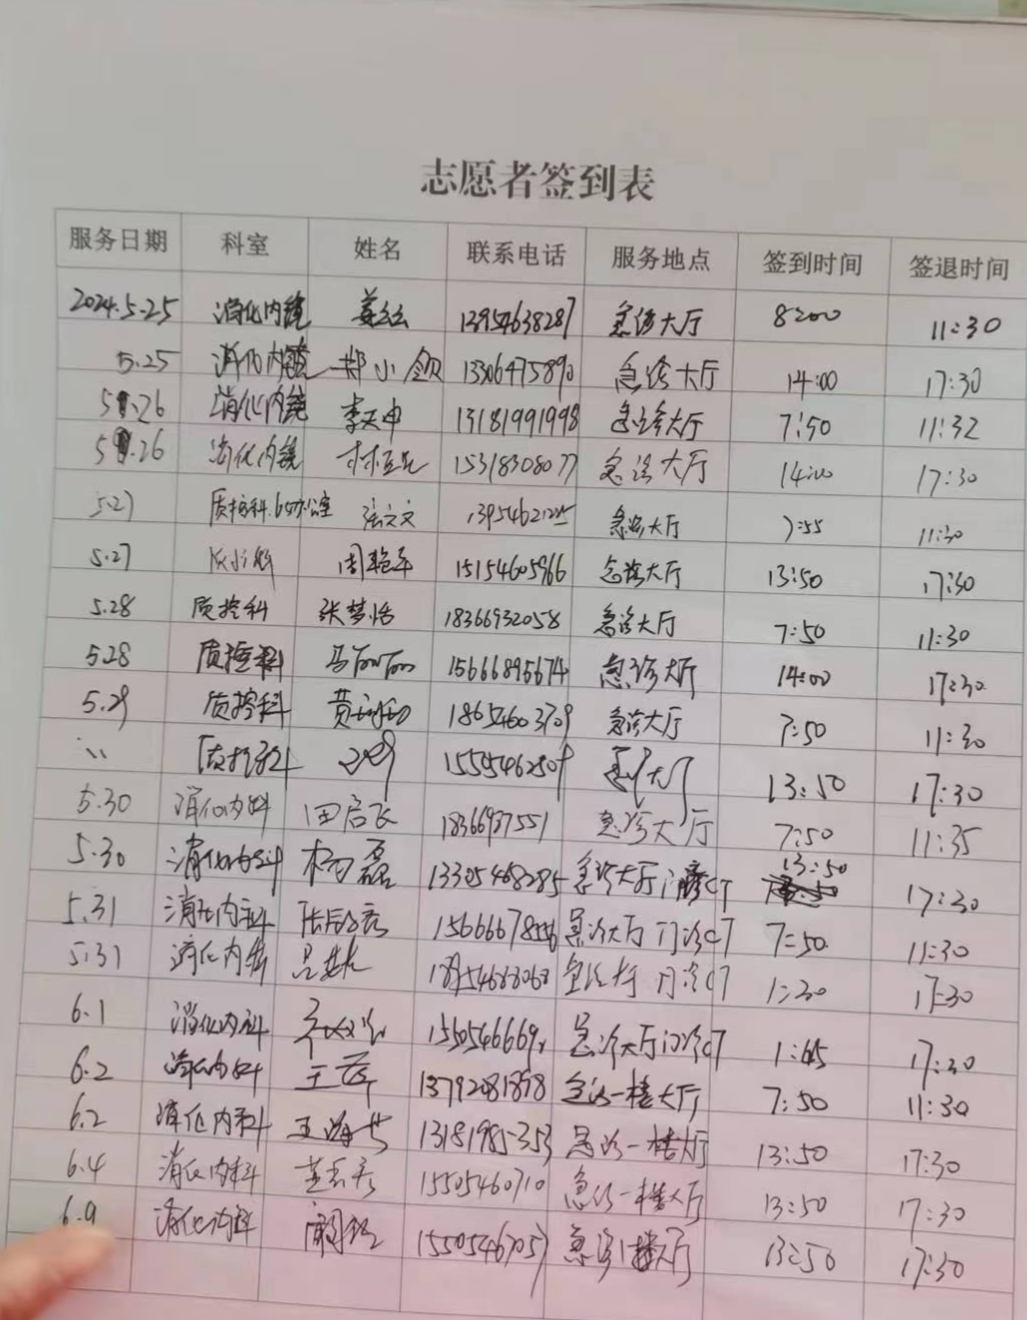 志愿者签到表
服务日期 科室 姓名 联系电话 服务地点 签到时间 签退时间
2024.5.25 消化内镜 13954638287 急诊大厅 8:00 11:30
5.25 消化内镜 郑小颌 13306475890 急诊大厅 14:00 17:30
5.26 消化内镜 李天申 13181991998 急诊大厅 7:50 11:32
5.26 消化内镜 15318308077 急诊大厅 14:00 17:30
5.27 质控科 张文文 急诊大厅 7:55 11:30
5.27 周艳平 15154605966 急诊大厅 13:50 17:30
5.28 质控科 张梦恬 18366932058 急诊大厅 7:50 11:30
5.28 质控科 马丽丽 15666895674 急诊大厅 14:00 17:30
5.29 质控科 18654603709 急诊大厅 7:50 11:30
质控科 急诊大厅 13:50 17:30
5.30 消化内科 田启飞 急诊大厅 7:50 11:35
5.30 消化内科 杨磊 13305468285 急诊大厅 门诊CT 13:50 17:30
5.31 消化内科 急诊大厅 门诊CT 7:50 11:30
5.31 消化内科 急诊大厅 门诊CT 1:30 17:30
6.1 消化内科 急诊大厅 门诊CT 1:45 17:30
6.2 消化内科 13792081878 急诊一楼大厅 7:50 11:30
6.2 消化内科 13181985353 急诊一楼大厅 13:50 17:30
6.4 消化内科 15505460710 急诊一楼大厅 13:50 17:30
6.9 消化内科 15505467057 急诊1楼大厅 13:50 17:30